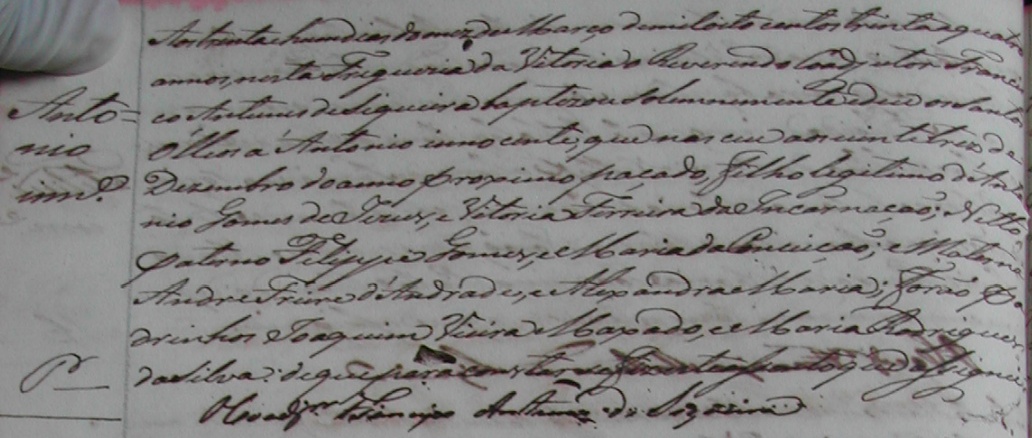 Aos trinta e hum dias do mez de Março de mil oito centos trinta e quatro
annos, nesta Freguezia da Vitoria o Reverendo Coadjutor Franc
Anto=
co Antunes de Siqueira baptizou solemnemente e deu os Santos
nio
Olleos a Antonio innocente, que nasceu aos vinte e tres de
inn.e
Dezembro do anno proximo paçado, filho legitimo de Anto
nio Gomes de Jezus, e Vitoria Ferreira da Encarnação; Netto
paterno Felippe Gomes, e Maria da Conceição, e Materno
Andre Freire d'Andrade, e Alexandra Maria; forão pa
drinhos Joaquim Vieira Maxado, e Maria Rodrigues
P
da Silva: de que para constar
O Coadj.or Francisco Antunes de Siqueira